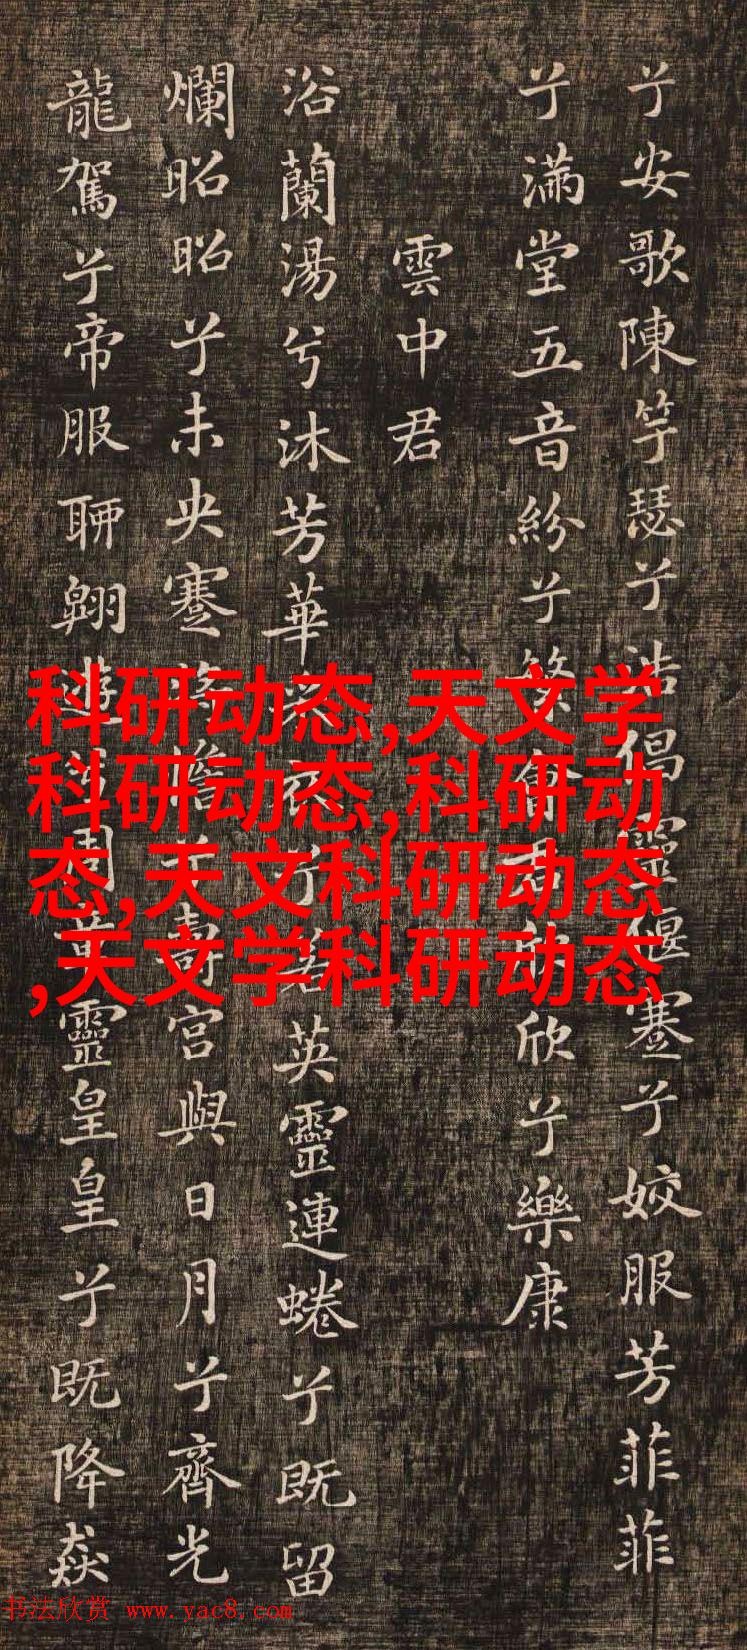 兮安歌陳竽瑟兮浩倡靈偃蹇兮姣服芳菲菲
兮滿堂五音紛兮繁會君欣欣兮樂康
雲中君
浴蘭湯兮沐芳華采衣兮若英靈連蜷兮既留
爛昭昭兮未央蹇將憺兮壽宮與日月兮齊光
龍駕兮帝服聊翱遊兮周章靈皇皇兮既降猋
科研动态,天文学
科研动态,科研动
态,天文科研动态
,天文学科研动态
书法欣赏 www.yac8.com